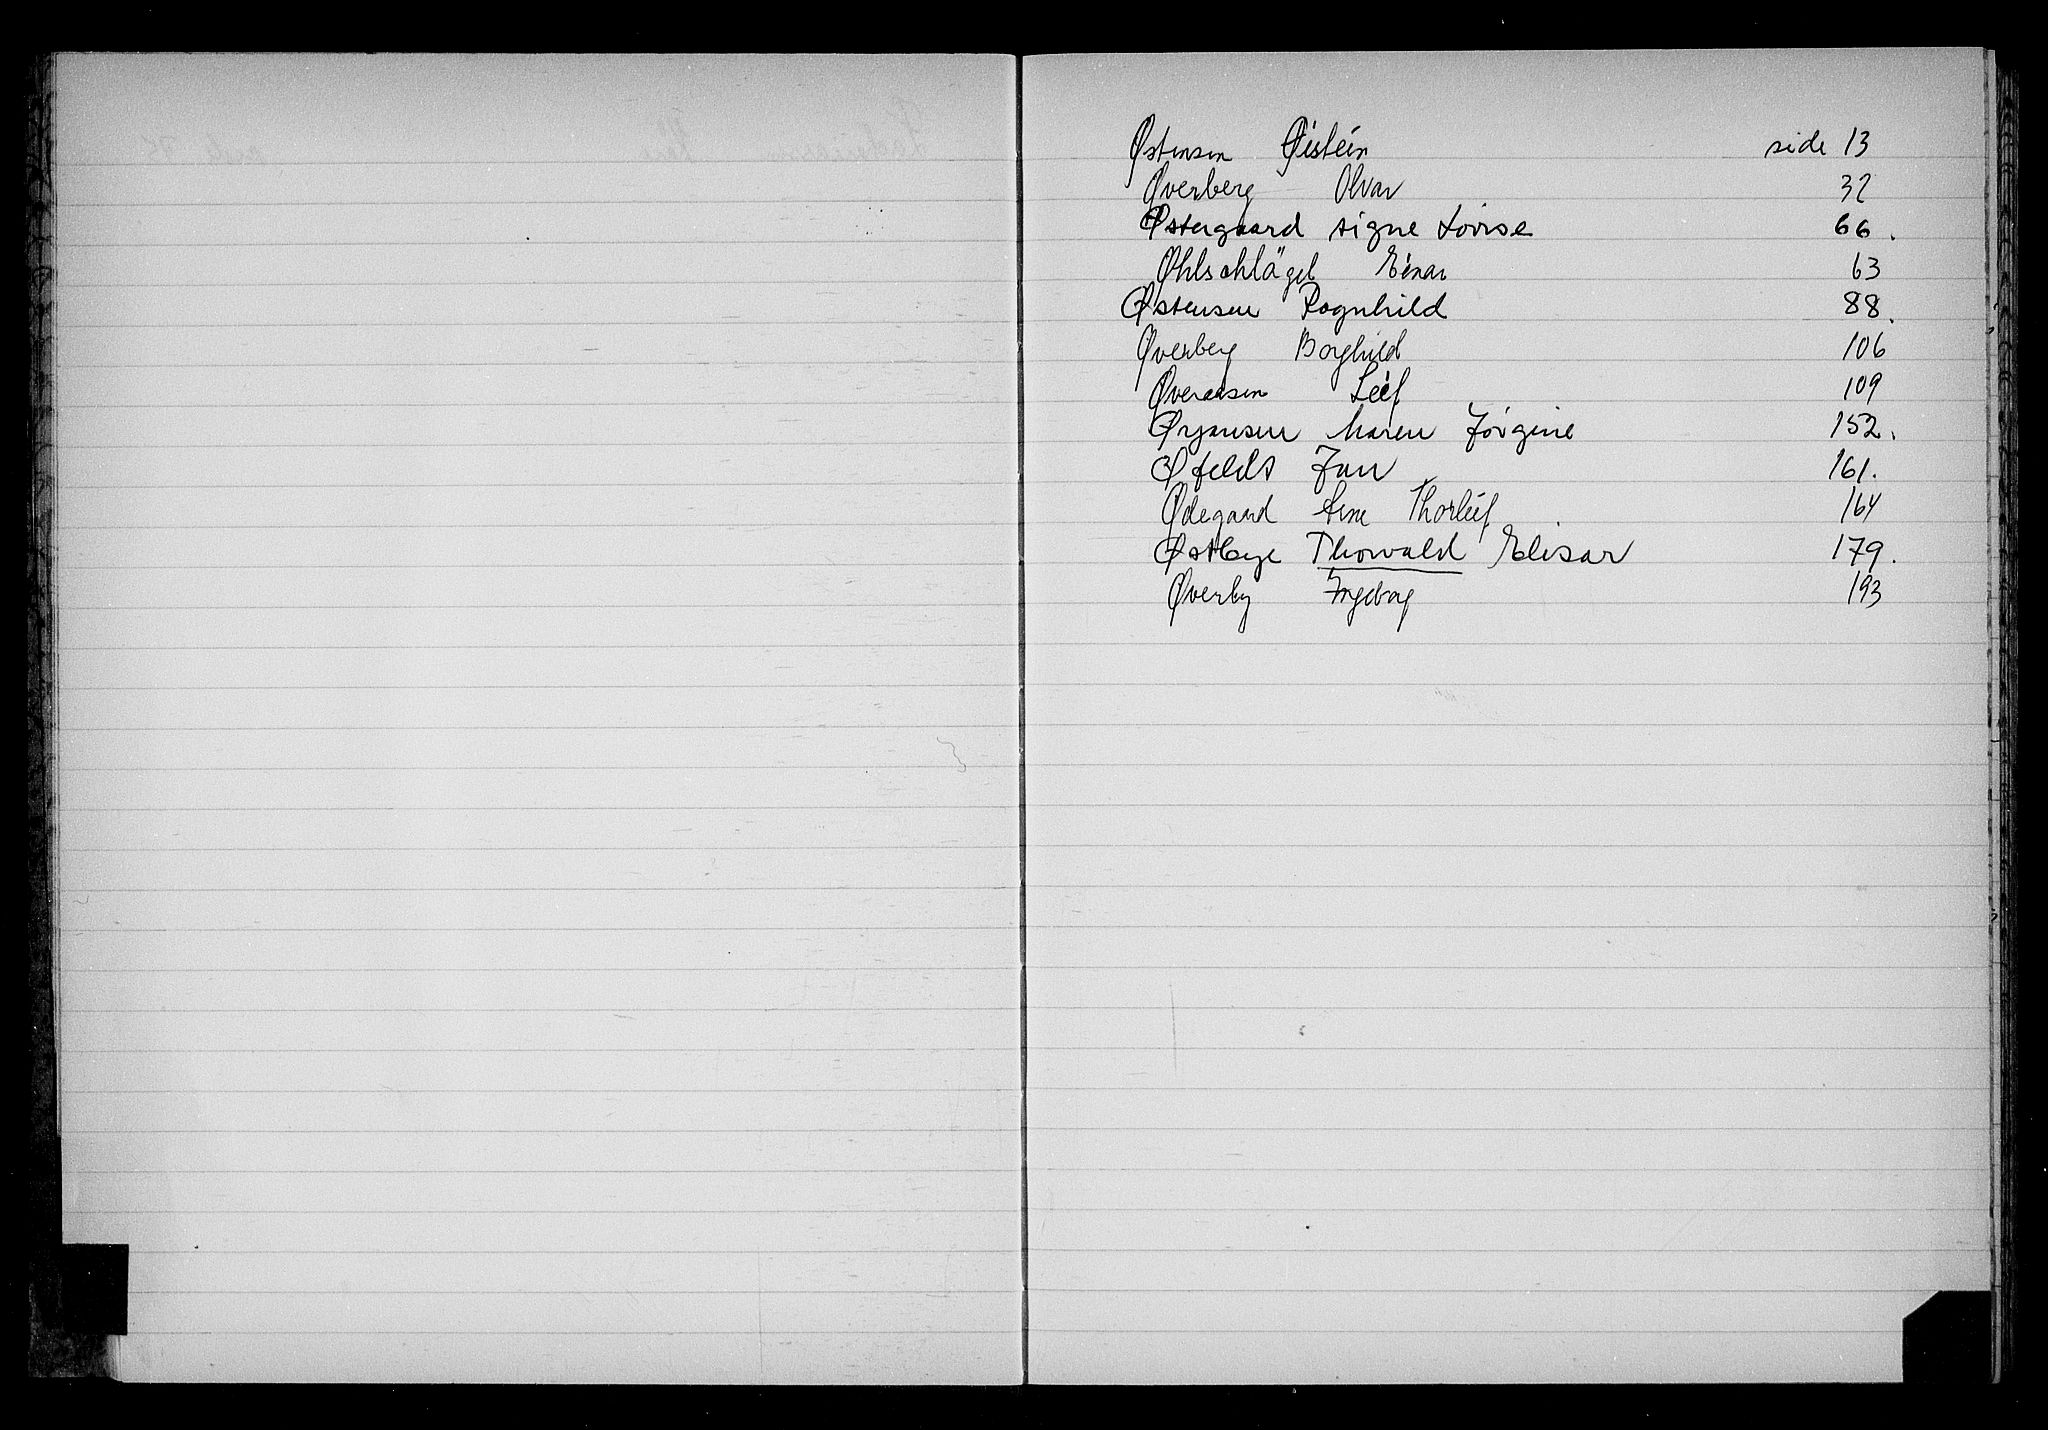 Østensen Øistein side 13
Øverberg Olvar 32
Østergaard Signe Lovise 66.
Øhlschlägel Einar 63
Østensen Ragnhild 88.
Øverberg Borghild 106
Øveraasen Leif 109
Ørjansen Maren Jørgine 152.
Øfeldt Jan 161.
Ødegaard Arne Thorleif 164
Østbye Thorvald Elisar 179.
Øverby Ingeborg 193